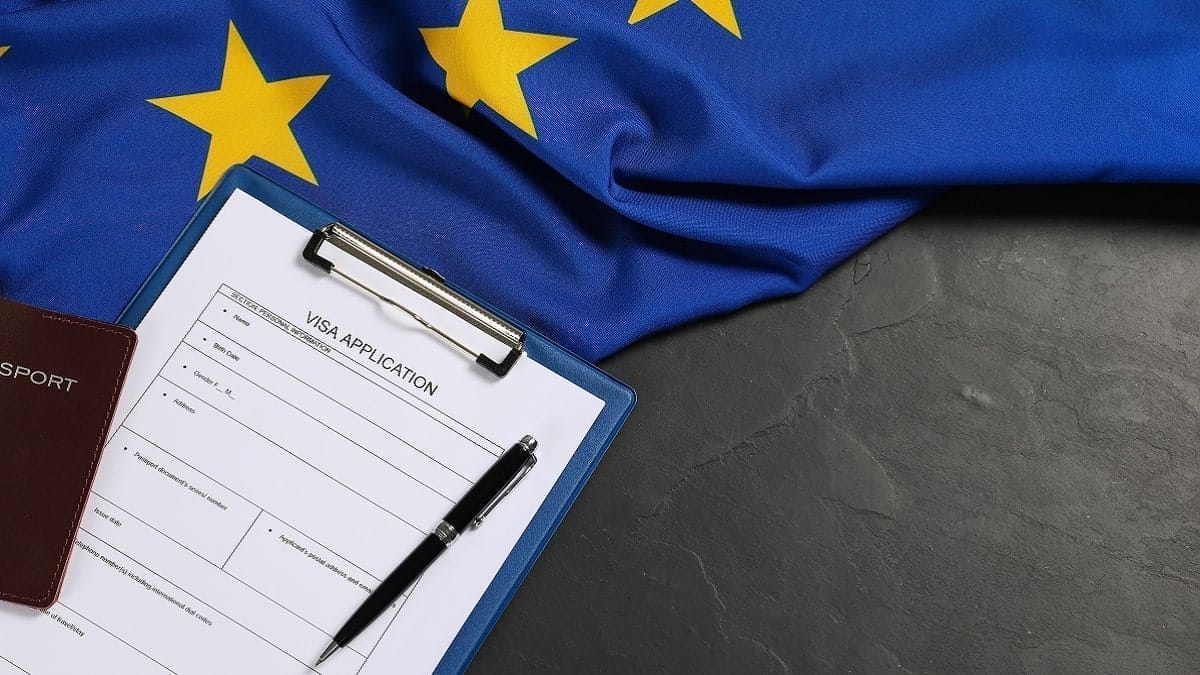 VISA APPLICATION
SECTION: PERSONAL INFORMATION
• Name
• Birth Date
• Gender F__ M__
• Address
• Passport document's series/ number
Issue date
• Applicant's postal address and email
number(s) including international dial codes
of travel/stay
SPORT